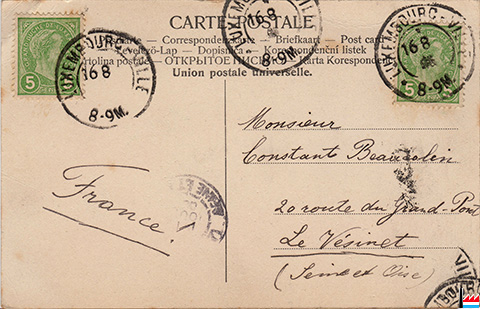 CARTE POSTALE
Correspondenzkarte — Briefkaart — Post card
Levelező-Lap — Dopisnice — Korespondenční lístek
Cartolina postale — ОТКРЫТОЕ ПИСЬМО — Karta Korespondencyjna
Union postale universelle.
LUXEMBOURG-VILLE
16 8
8-9M
LUXEMBOURG-VILLE
16 8
8-9M.
LUXEMBOURG-VILLE
16 8
8-9M
5
5
Monsieur
Constant
20 route du Grand Pont
Le Vésinet
(Seine et Oise)
France.